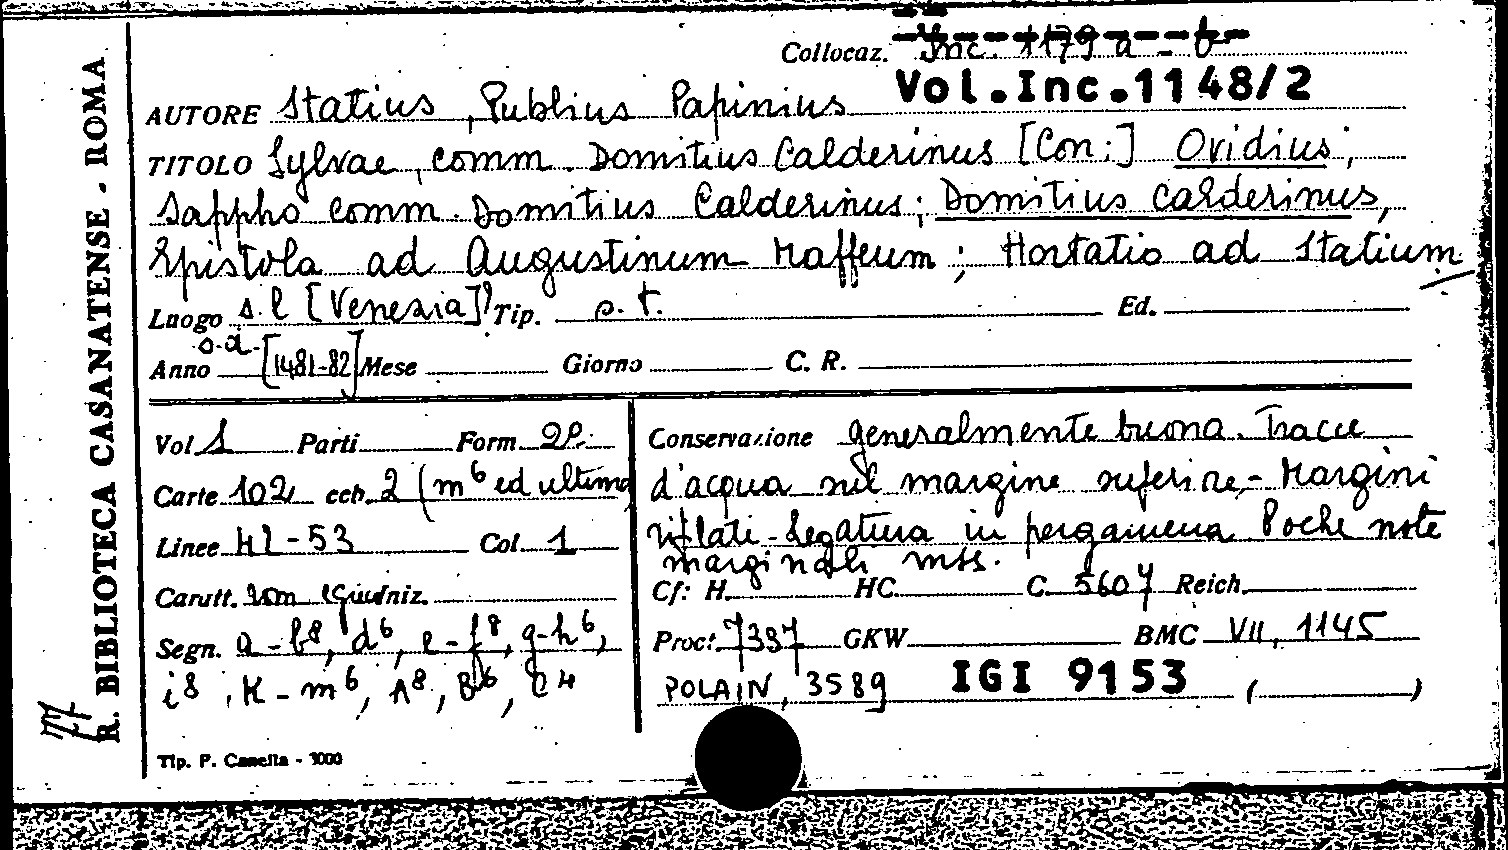 Collocaz. Inc. 1179 a - b
Vol.Inc.1148/2
AUTORE Statius, Publius Papinius
TITOLO Sylvae, comm. Domitius Calderinus [Con:] Ovidius;
Sappho comm. Domitius Calderinus; Domitius Calderinus,
Epistola ad Augustinum Maffeum; Hortatio ad Statium
Luogo s.l [Venezia]? Tip. s. t. Ed.
Anno s.d. [1481-82] Mese Giorno C. R.
Vol 1 Parti Form. 2º
Carte 102 cch. 2 (m⁶ ed ultima
Linee 42-53 Col. 1
Caratt. rom Iniz.
Segn. a - b⁸, d⁶, e - f⁸, g-h⁶,
i⁸, K - m⁶, A⁸, B⁶, C⁴
Conservazione generalmente buona. Tracce
d'acqua nel margine superiore - Margini
rifilati - Legatura in pergamena Poche note
marginali mss.
Cf: H. HC. C. 5607 Reich.
Proct. 7337 GKW BMC VII, 1145
POLAIN, 3589 IGI 9153 ( )
Tip. P. Canella - 3000
R. BIBLIOTECA CASANATENSE - ROMA
77